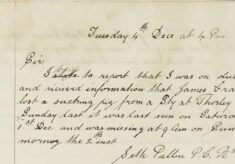 Tuesday 4th Dec at 4 Pm
Sir
I state to report that I was on du
and received information that James Cra
lost a sucking pig from a Sty at Thorley
Sunday last it was last seen on Saturd
1st Dec and was missing at 9 am, Sun
morning the 2nd inst
Seth Pullin P.C.